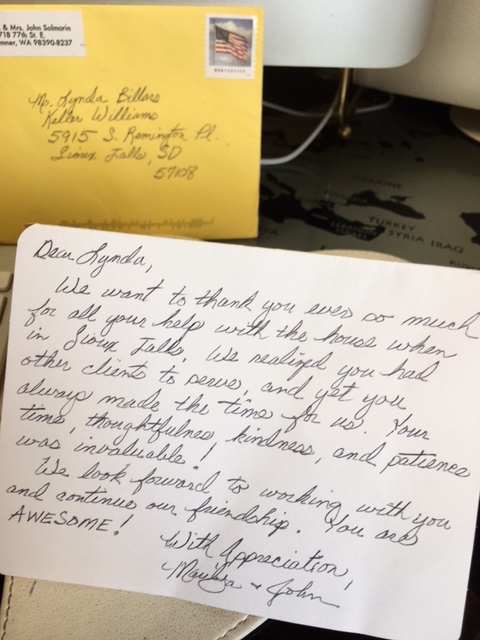 & Mrs. John Solmarin
718 77th St. E.
mner, WA 98390-8237
Ms. Lynda Billars
Keller Williams
5915 S. Remington Pl.
Sioux Falls, SD
57108
UKRAINE
TURKEY
SYRIA IRAQ
Dear Lynda,
We want to thank you ever so much
for all your help with the house when
in Sioux Falls. We realized you had
other clients to serve, and yet you
always made the time for us. Your
time, thoughtfulness, kindness, and patience
was invaluable!
We look forward to working with you
and continue our friendship. You are
AWESOME!
With Appreciation,
& John